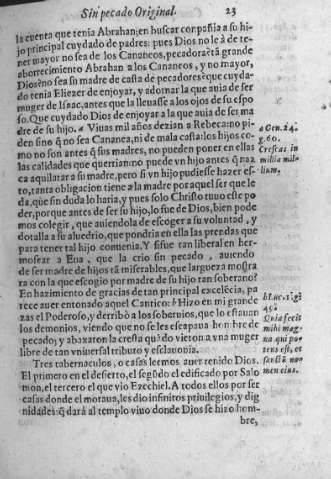 Sin pecado Original. 23
la cuenta que tenia Abrahan; en buscar cõpañia a su hi-
jo principal cuydado de padres: pues Dios no le à de te-
ner mayor no sea de los Cananeos, pecadora: tã grande
aborrecimiento Abrahan a los Cananeos, y no mayor,
Dios è no sea su madre de casta de pecadores que cuyda-
do tenia Eliezer de enjoyar, y adornar la que auia de ser
muger de Isaac, antes que la lleuasse a los ojos de su espo
so. Que cuydado Dios de enjoyar a la que auia de ser ma
dre de su hijo. a Viuas mil años dezian a Rebeca: no pi-
den sino q̃ no sea Cananea, ni de mala casta: los hijos co-
mo no son antes q̃ sus madres, no pueden poner en ellas
las calidades que querrian: no puede vn hijo antes q̃ naz
ca aquilatar a su madre, pero si vn hijo pudiesse hazer es-
to, tanta obligacion tiene a la madre por aquel ser que le
da, que sin duda lo haria, y pues solo Christo tuuo este po
der, porque antes de ser su hijo, lo fue de Dios, bien pode
mos colegir, que auiendola de escoger a su voluntad, y
dotalla a su aluedrio, que pondria en ella las prendas que
para tener tal hijo conuenia. Y si fue tan liberal en her-
mosear a Eua, que la crio sin pecado, auiendo
de ser madre de hijos tã miserables, que largueza mostra
ra con la que escogio por madre de su hijo tan soberano?
En hazimiento de gracias de tan principal excelẽcia, pa
rece auer entonado aquel Cantico: b Hizo en mi grande
zas el Poderoso, y derribò a los soberuios, que lo estauan
los demonios, viendo que no se les escapaua hombre de
pecado; y abaxaron la cresta quãdo vieron a vna muger
libre de tan vniuersal tributo y esclauonia.
Tres tabernaculos, o casas leemos auer tenido Dios.
El primero en el desierto, el segũdo el edificado por Salo
mon, el tercero el que vio Ezechiel. A todos ellos por ser
casas donde el moraua, les dio infinitos priuilegios, y dig
nidades: q̃ darà al templo viuo donde Dios se hizo hom-
bre,
a Gen. 24.
g. 60.
Crescas in
millia mil-
lium.
b Luc. 1. g.
45.
Quia fecit
mihi mag-
na qui po-
tens est, et
sanctũ no-
men eius.